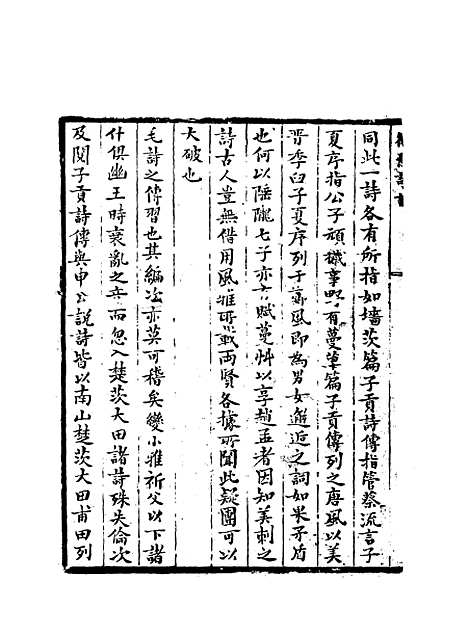 同此一詩各有所指如墻茨篇子貢詩傳指管蔡流言子
夏序指公子頑穢事野有蔓草篇子貢傳列之唐風以美
晋季臼子夏序列于鄭風即為男女邂逅之詞如果矛盾
也何以隨隴七子亦言賦蔓艸以享趙孟者因知美刺之
詩古人豈無借用風雅所載両賢各據所聞此疑團可以
大破也
毛詩之傳習也其編次亦莫可稽矣變小雅祈父以下諸
什俱幽王時衰亂之音而忽入楚茨大田諸詩殊失倫次
及閱子貢詩傳與申公說詩皆以南山楚茨大田甫田列